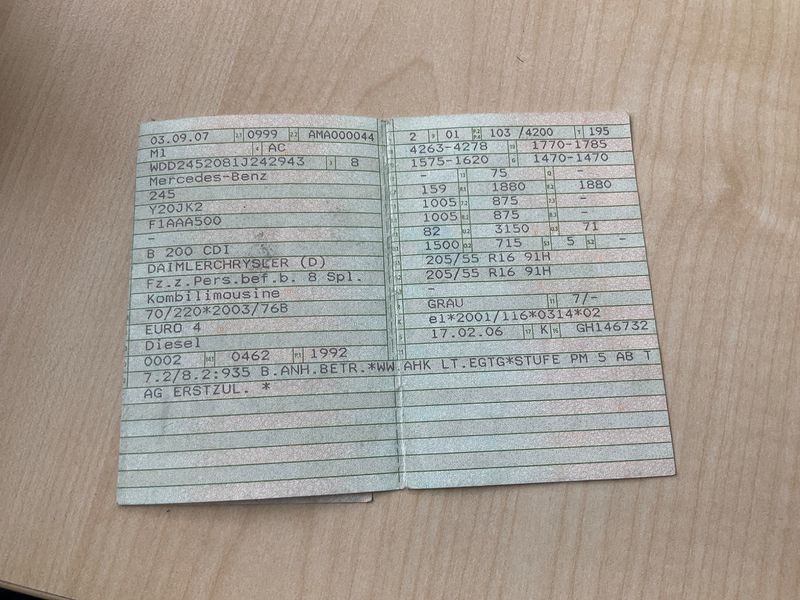 03.09.07 0999 AMA000044
M1 AC
WDD2452081J242943 8
Mercedes-Benz
245
Y20JK2
F1AAA500
-
B 200 CDI
DAIMLERCHRYSLER (D)
Fz.z.Pers.bef.b. 8 Spl.
Kombilimousine
70/220*2003/76B
EURO 4
Diesel
0002 0462 1992
7.2/8.2:935 B.ANH.BETR.*WW.AHK LT.EGTG*STUFE PM 5 AB T
AG ERSTZUL. *
2 01 103 /4200 195
4263-4278 1770-1785
1575-1620 1470-1470
- 75 -
159 1880 1880
1005 875 -
1005 875 -
82 3150 71
1500 715 5 -
205/55 R16 91H
205/55 R16 91H
-
GRAU 7/-
e1*2001/116*0314*02
17.02.06 K GH146732